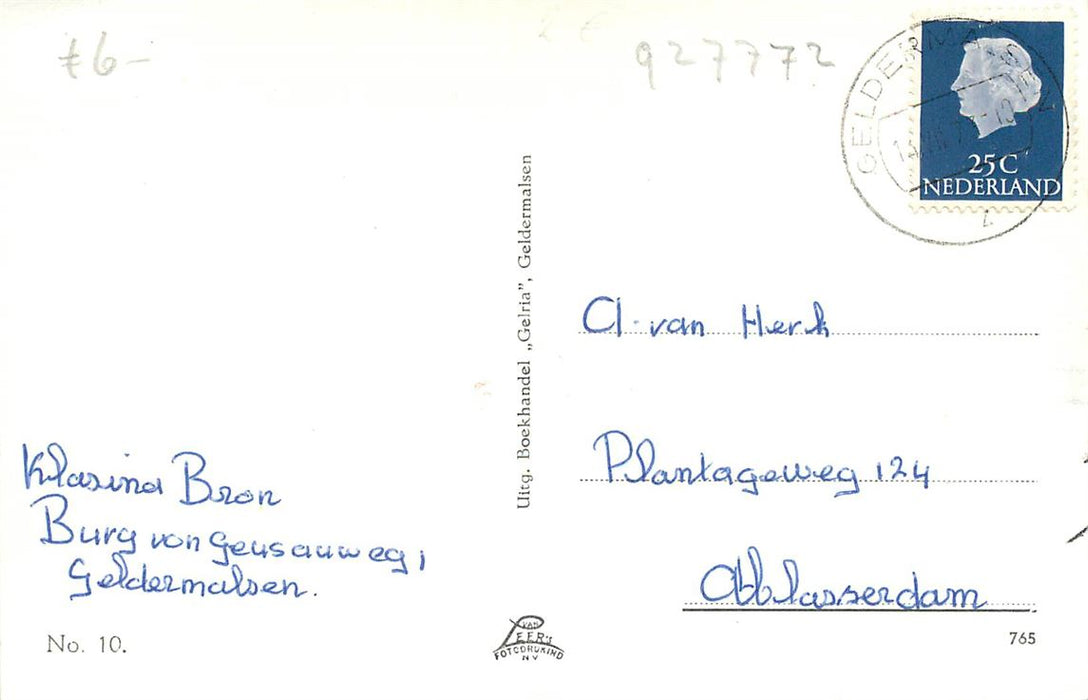 £6-
927772
GELDERMALSEN
25C
NEDERLAND
Uitg. Boekhandel „Gelria”, Geldermalsen
A. van Herk
Plantageweg 124
Alblasserdam
Klasina Bron
Burg von Geusauweg 1
Geldermalsen.
No. 10.
VAN
LEER'S
FOTODRUKIND
N V
765